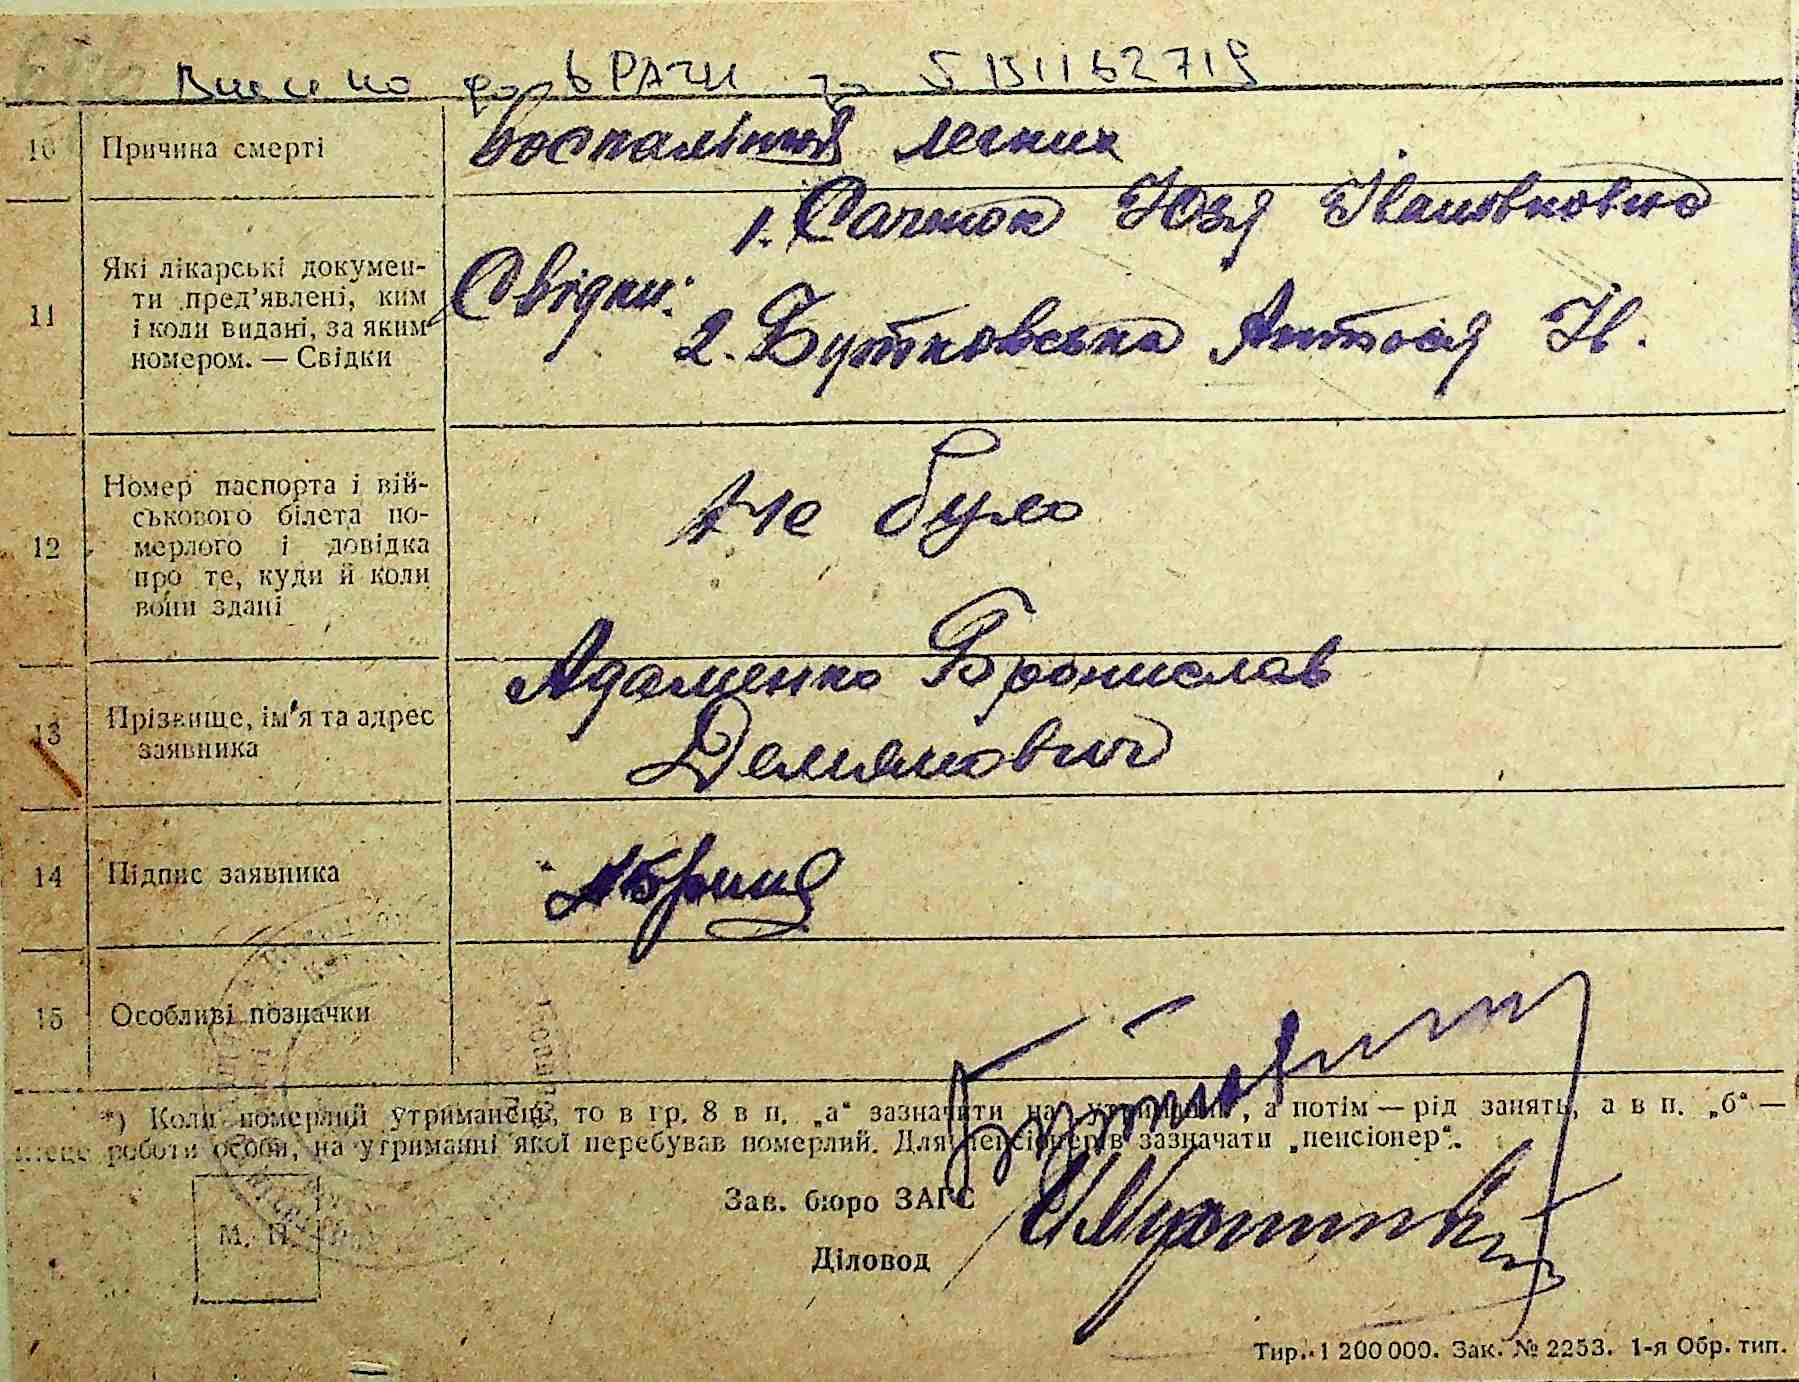 Внесено до ДРАЦС за 5131162719
10 Причина смерті Воспаління легких
11 Які лікарські докумен-
ти пред'явлені, ким
і коли видані, за яким
номером. — Свідки
Свідки: 1. Сачнок Юзя Івановновна
2. Бутковська Антося Н.
12 Номер паспорта і вій-
ськового білета по-
мерлого і довідка
про те, куди й коли
вони здані
Не було
13 Прізвище, ім'я та адрес
заявника
Адаменко Бронислав
Демянович
14 Підпис заявника
15 Особливі позначки
*) Коли померлий утриманець, то в гр. 8 в п. „а" зазначити на утриманні, а потім — рід занять, а в п. „б" —
місце роботи особи, на утриманні якої перебував померлий. Для пенсіонерів зазначати „пенсіонер".
Зав. бюро ЗАГС
М. П.
Діловод
Тир. 1 200 000. Зак. № 2253. 1-я Обр. тип.